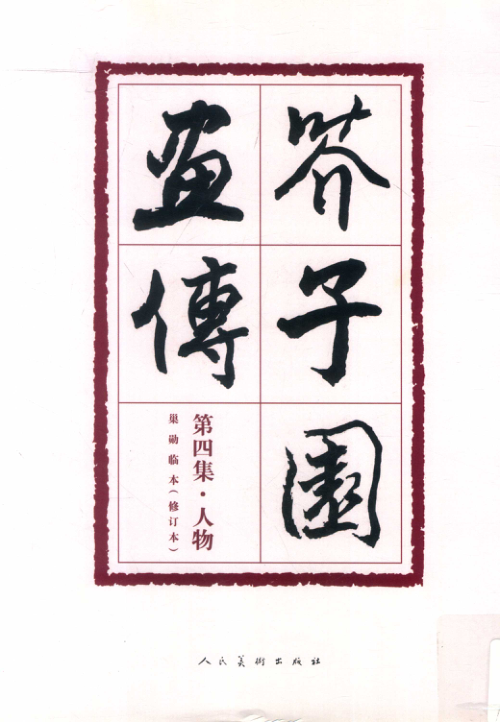 芥子園
畫傳
第四集·人物
巢勋临本(修订本)
人民美術出版社